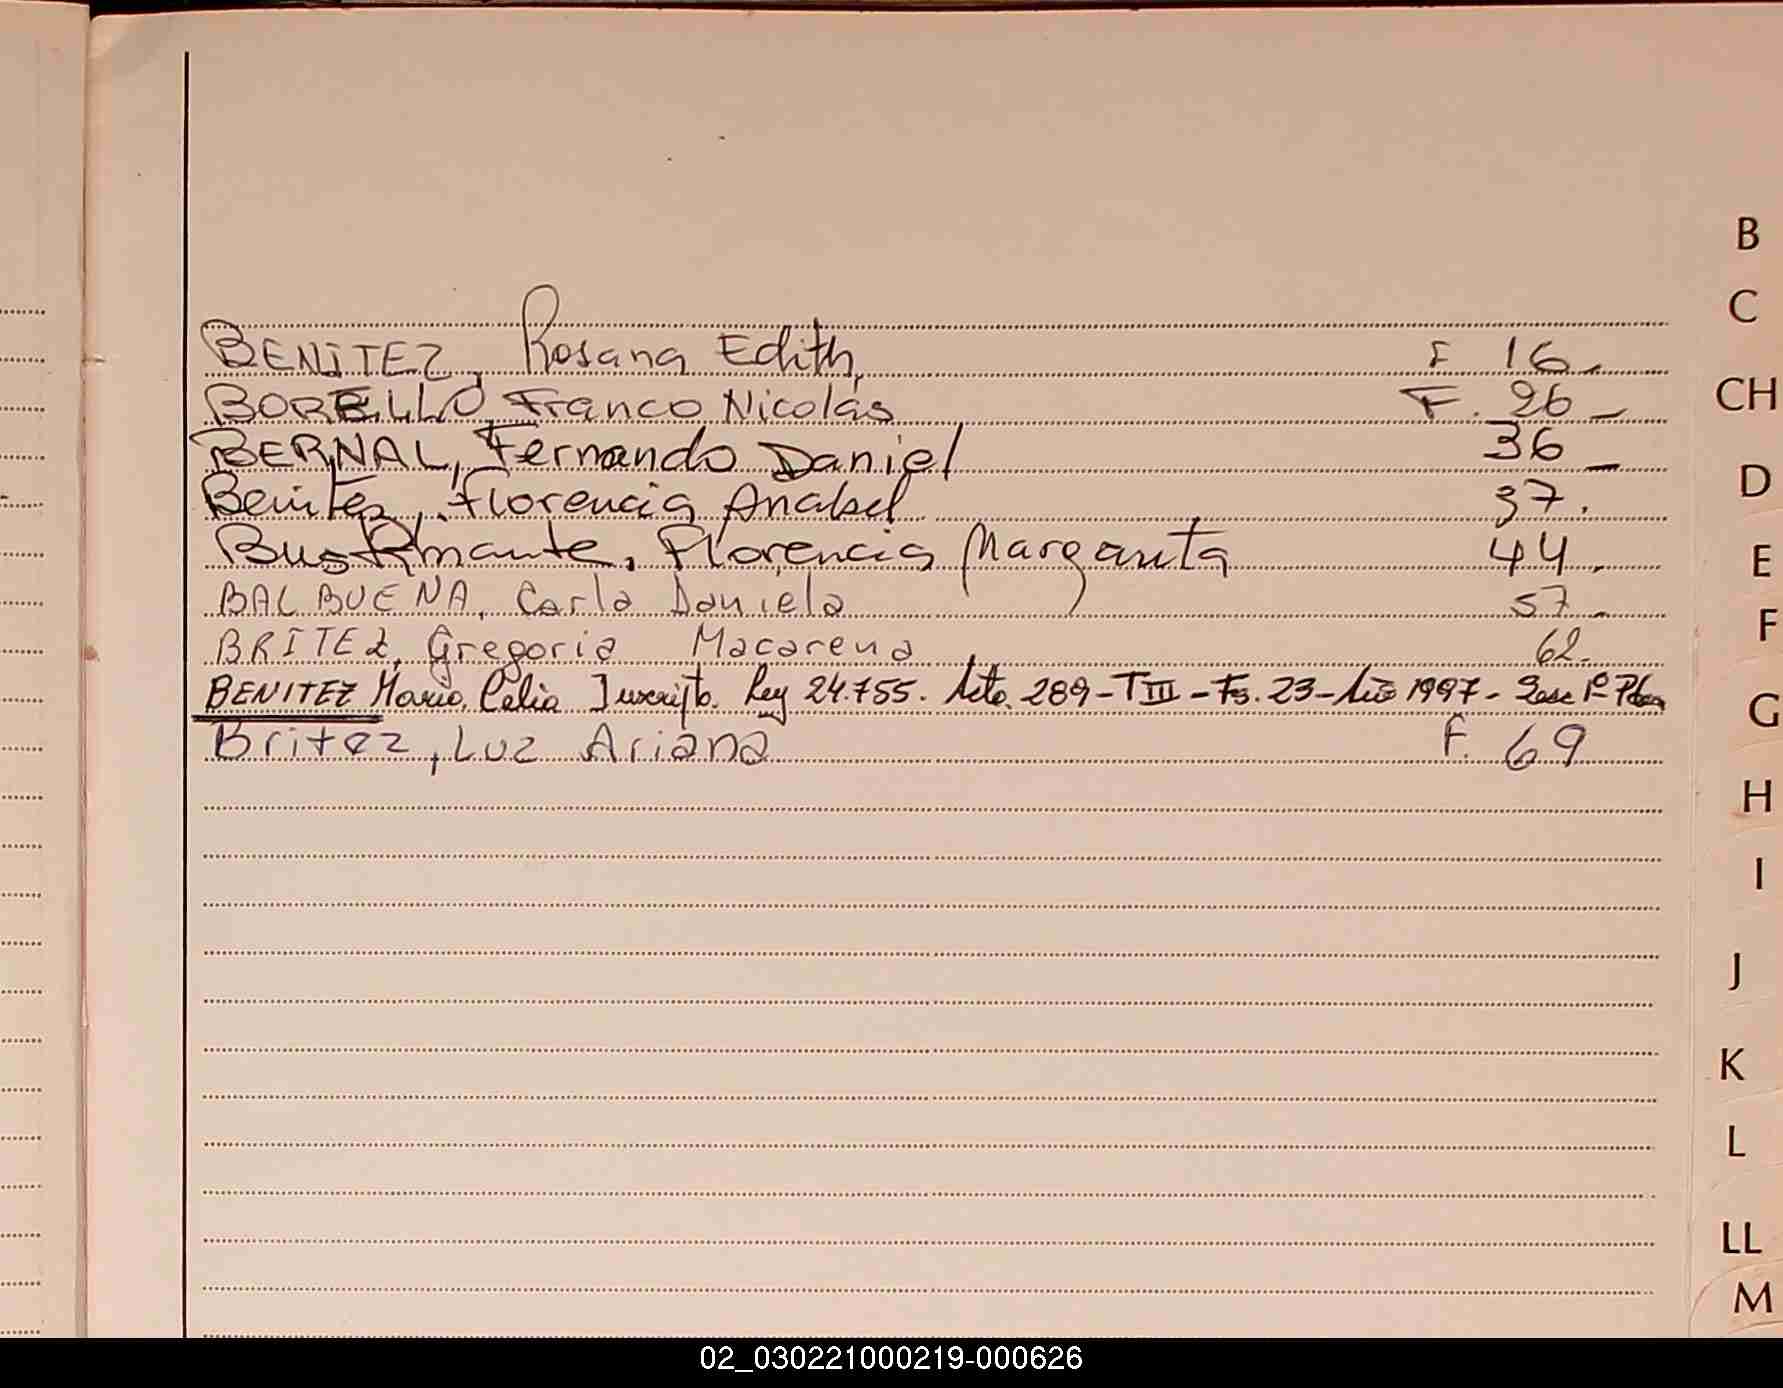 BENITEZ, Rosana Edith, F 16.
BORELLO, Franco Nicolás F. 26
BERNAL, Fernando Daniel 36
Benitez, Florencia Anabel 37.
Bustamante, Florencia Margarita 44.
BALBUENA, Carla Daniela 57.
BRITEZ, Gregoria Macarena 62.
BENITEZ Maria Celia Inscripto. Ley 24.755. Acta 289-TIII-Fs. 23-Año 1997-
Britez, Luz Ariana F. 69
B
C
CH
D
E
F
G
H
I
J
K
L
LL
M
02_030221000219-000626